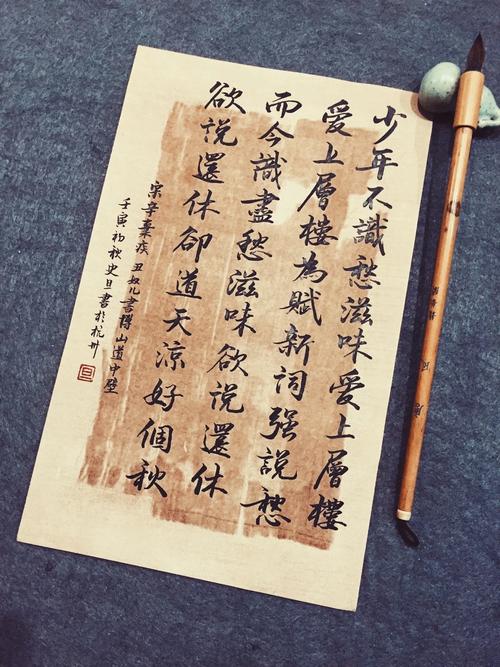 少年不識愁滋味愛上層樓
愛上層樓為賦新詞強說愁
而今識盡愁滋味欲說還休
欲說還休卻道天涼好個秋
宋辛棄疾丑奴兒書博山道中壁
壬寅初秋史旦書於杭州
旦